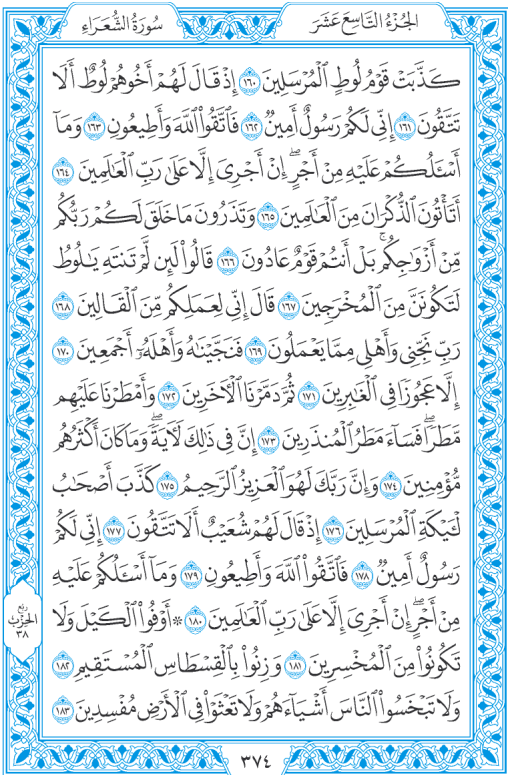 سُورَةُ الشُّعَرَاءِ
الجُزْءُ التَّاسِعَ عَشَرَ
كَذَّبَتْ قَوْمُ لُوطٍ الْمُرْسَلِينَ ١٦٠ إِذْ قَالَ لَهُمْ أَخُوهُمْ لُوطٌ أَلَا
تَتَّقُونَ ١٦١ إِنِّي لَكُمْ رَسُولٌ أَمِينٌ ١٦٢ فَاتَّقُوا اللَّهَ وَأَطِيعُونِ ١٦٣ وَمَا
أَسْـَٔلُكُمْ عَلَيْهِ مِنْ أَجْرٍ إِنْ أَجْرِيَ إِلَّا عَلَىٰ رَبِّ الْعَالَمِينَ ١٦٤
أَتَأْتُونَ الذُّكْرَانَ مِنَ الْعَالَمِينَ ١٦٥ وَتَذَرُونَ مَا خَلَقَ لَكُمْ رَبُّكُم
مِّنْ أَزْوَاجِكُم ۚ بَلْ أَنتُمْ قَوْمٌ عَادُونَ ١٦٦ قَالُوا لَئِن لَّمْ تَنتَهِ يَا لُوطُ
لَتَكُونَنَّ مِنَ الْمُخْرَجِينَ ١٦٧ قَالَ إِنِّي لِعَمَلِكُم مِّنَ الْقَالِينَ ١٦٨
رَبِّ نَجِّنِي وَأَهْلِي مِمَّا يَعْمَلُونَ ١٦٩ فَنَجَّيْنَاهُ وَأَهْلَهُ أَجْمَعِينَ ١٧٠
إِلَّا عَجُوزًا فِي الْغَابِرِينَ ١٧١ ثُمَّ دَمَّرْنَا الْآخَرِينَ ١٧٢ وَأَمْطَرْنَا عَلَيْهِم
مَّطَرًا ۖ فَسَاءَ مَطَرُ الْمُنذَرِينَ ١٧٣ إِنَّ فِي ذَٰلِكَ لَآيَةً ۖ وَمَا كَانَ أَكْثَرُهُم
مُّؤْمِنِينَ ١٧٤ وَإِنَّ رَبَّكَ لَهُوَ الْعَزِيزُ الرَّحِيمُ ١٧٥ كَذَّبَ أَصْحَابُ
لْـَٔيْكَةِ الْمُرْسَلِينَ ١٧٦ إِذْ قَالَ لَهُمْ شُعَيْبٌ أَلَا تَتَّقُونَ ١٧٧ إِنِّي لَكُمْ
رَسُولٌ أَمِينٌ ١٧٨ فَاتَّقُوا اللَّهَ وَأَطِيعُونِ ١٧٩ وَمَا أَسْـَٔلُكُمْ عَلَيْهِ
مِنْ أَجْرٍ ۖ إِنْ أَجْرِيَ إِلَّا عَلَىٰ رَبِّ الْعَالَمِينَ ١٨٠ ۞ أَوْفُوا الْكَيْلَ وَلَا
تَكُونُوا مِنَ الْمُخْسِرِينَ ١٨١ وَزِنُوا بِالْقِسْطَاسِ الْمُسْتَقِيمِ ١٨٢
وَلَا تَبْخَسُوا النَّاسَ أَشْيَاءَهُمْ وَلَا تَعْثَوْا فِي الْأَرْضِ مُفْسِدِينَ ١٨٣
ربع
الحزب
٣٨
٣٧٤